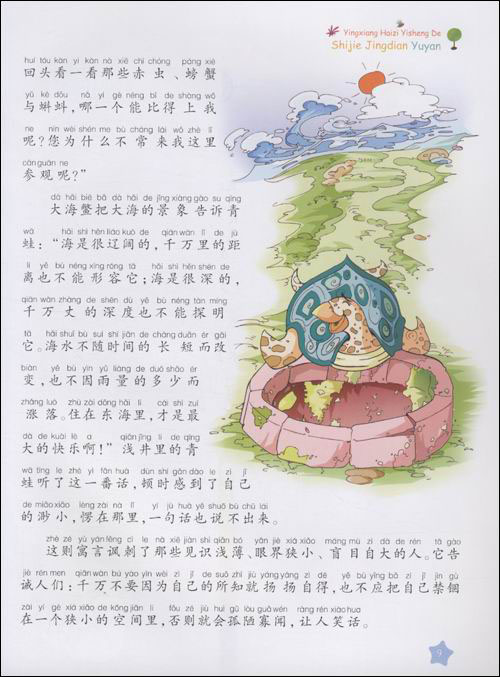 Yingxiang Haizi Yisheng De
Shijie Jingdian Yuyan
huí tóu kàn yi kàn nà xiē chì chóng páng xiè
回头看一看那些赤虫、螃蟹
yǔ kē dǒu nǎ yí gè néng bǐ de shàng wǒ
与蝌蚪,哪一个能比得上我
ne nín wèi shén me bù cháng lái wǒ zhè lǐ
呢?您为什么不常来我这里
cān guān ne
参观呢?”
dà hǎi biē bǎ dà hǎi de jǐng xiàng gào su qīng
大海鳖把大海的景象告诉青
wā hǎi shì hěn liáo kuò de qiān wàn lǐ de jù
蛙:“海是很辽阔的,千万里的距
lí yě bù néng xíng róng tā hǎi shì hěn shēn de
离也不能形容它;海是很深的,
qiān wàn zhàng de shēn dù yě bù néng tàn míng
千万丈的深度也不能探明
tā hǎi shuǐ bù suí shí jiān de cháng duǎn ér gǎi
它。海水不随时间的长短而改
biàn yě bù yīn yǔ liàng de duō shǎo ér
变,也不因雨量的多少而
zhǎng luò zhù zài dōng hǎi lǐ cái shì zuì
涨落。住在东海里,才是最
dà de kuài lè a qiǎn jǐng lǐ de qīng
大的快乐啊!”浅井里的青
wā tīng le zhè yì fān huà dùn shí gǎn dào le zì jǐ
蛙听了这一番话,顿时感到了自己
de miǎo xiǎo lèng zài nà lǐ yí jù huà yě shuō bù chū lái
的渺小,愣在那里,一句话也说不出来。
zhè zé yù yán fěng cì le nà xiē jiàn shi qiǎn bó yǎn jiè xiá xiǎo máng mù zì dà de rén tā gào
这则寓言讽刺了那些见识浅薄、眼界狭小、盲目自大的人。它告
jiè rén men qiān wàn bú yào yīn wèi zì jǐ de suǒ zhī jiù yáng yáng zì dé yě bù yīng bǎ zì jǐ jìn gù
诫人们:千万不要因为自己的所知就扬扬自得,也不应把自己禁锢
zài yí gè xiá xiǎo de kōng jiān lǐ fǒu zé jiù huì gū lòu guǎ wén ràng rén xiào hua
在一个狭小的空间里,否则就会孤陋寡闻,让人笑话。
9